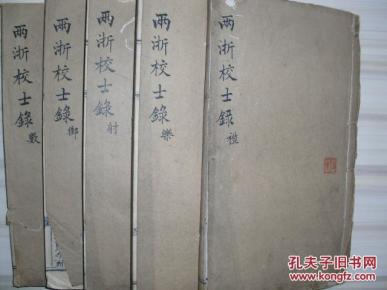 兩浙校士錄 禮
兩浙校士錄 樂
兩浙校士錄 射
兩浙校士錄 御
兩浙校士錄 數
孔夫子旧书网